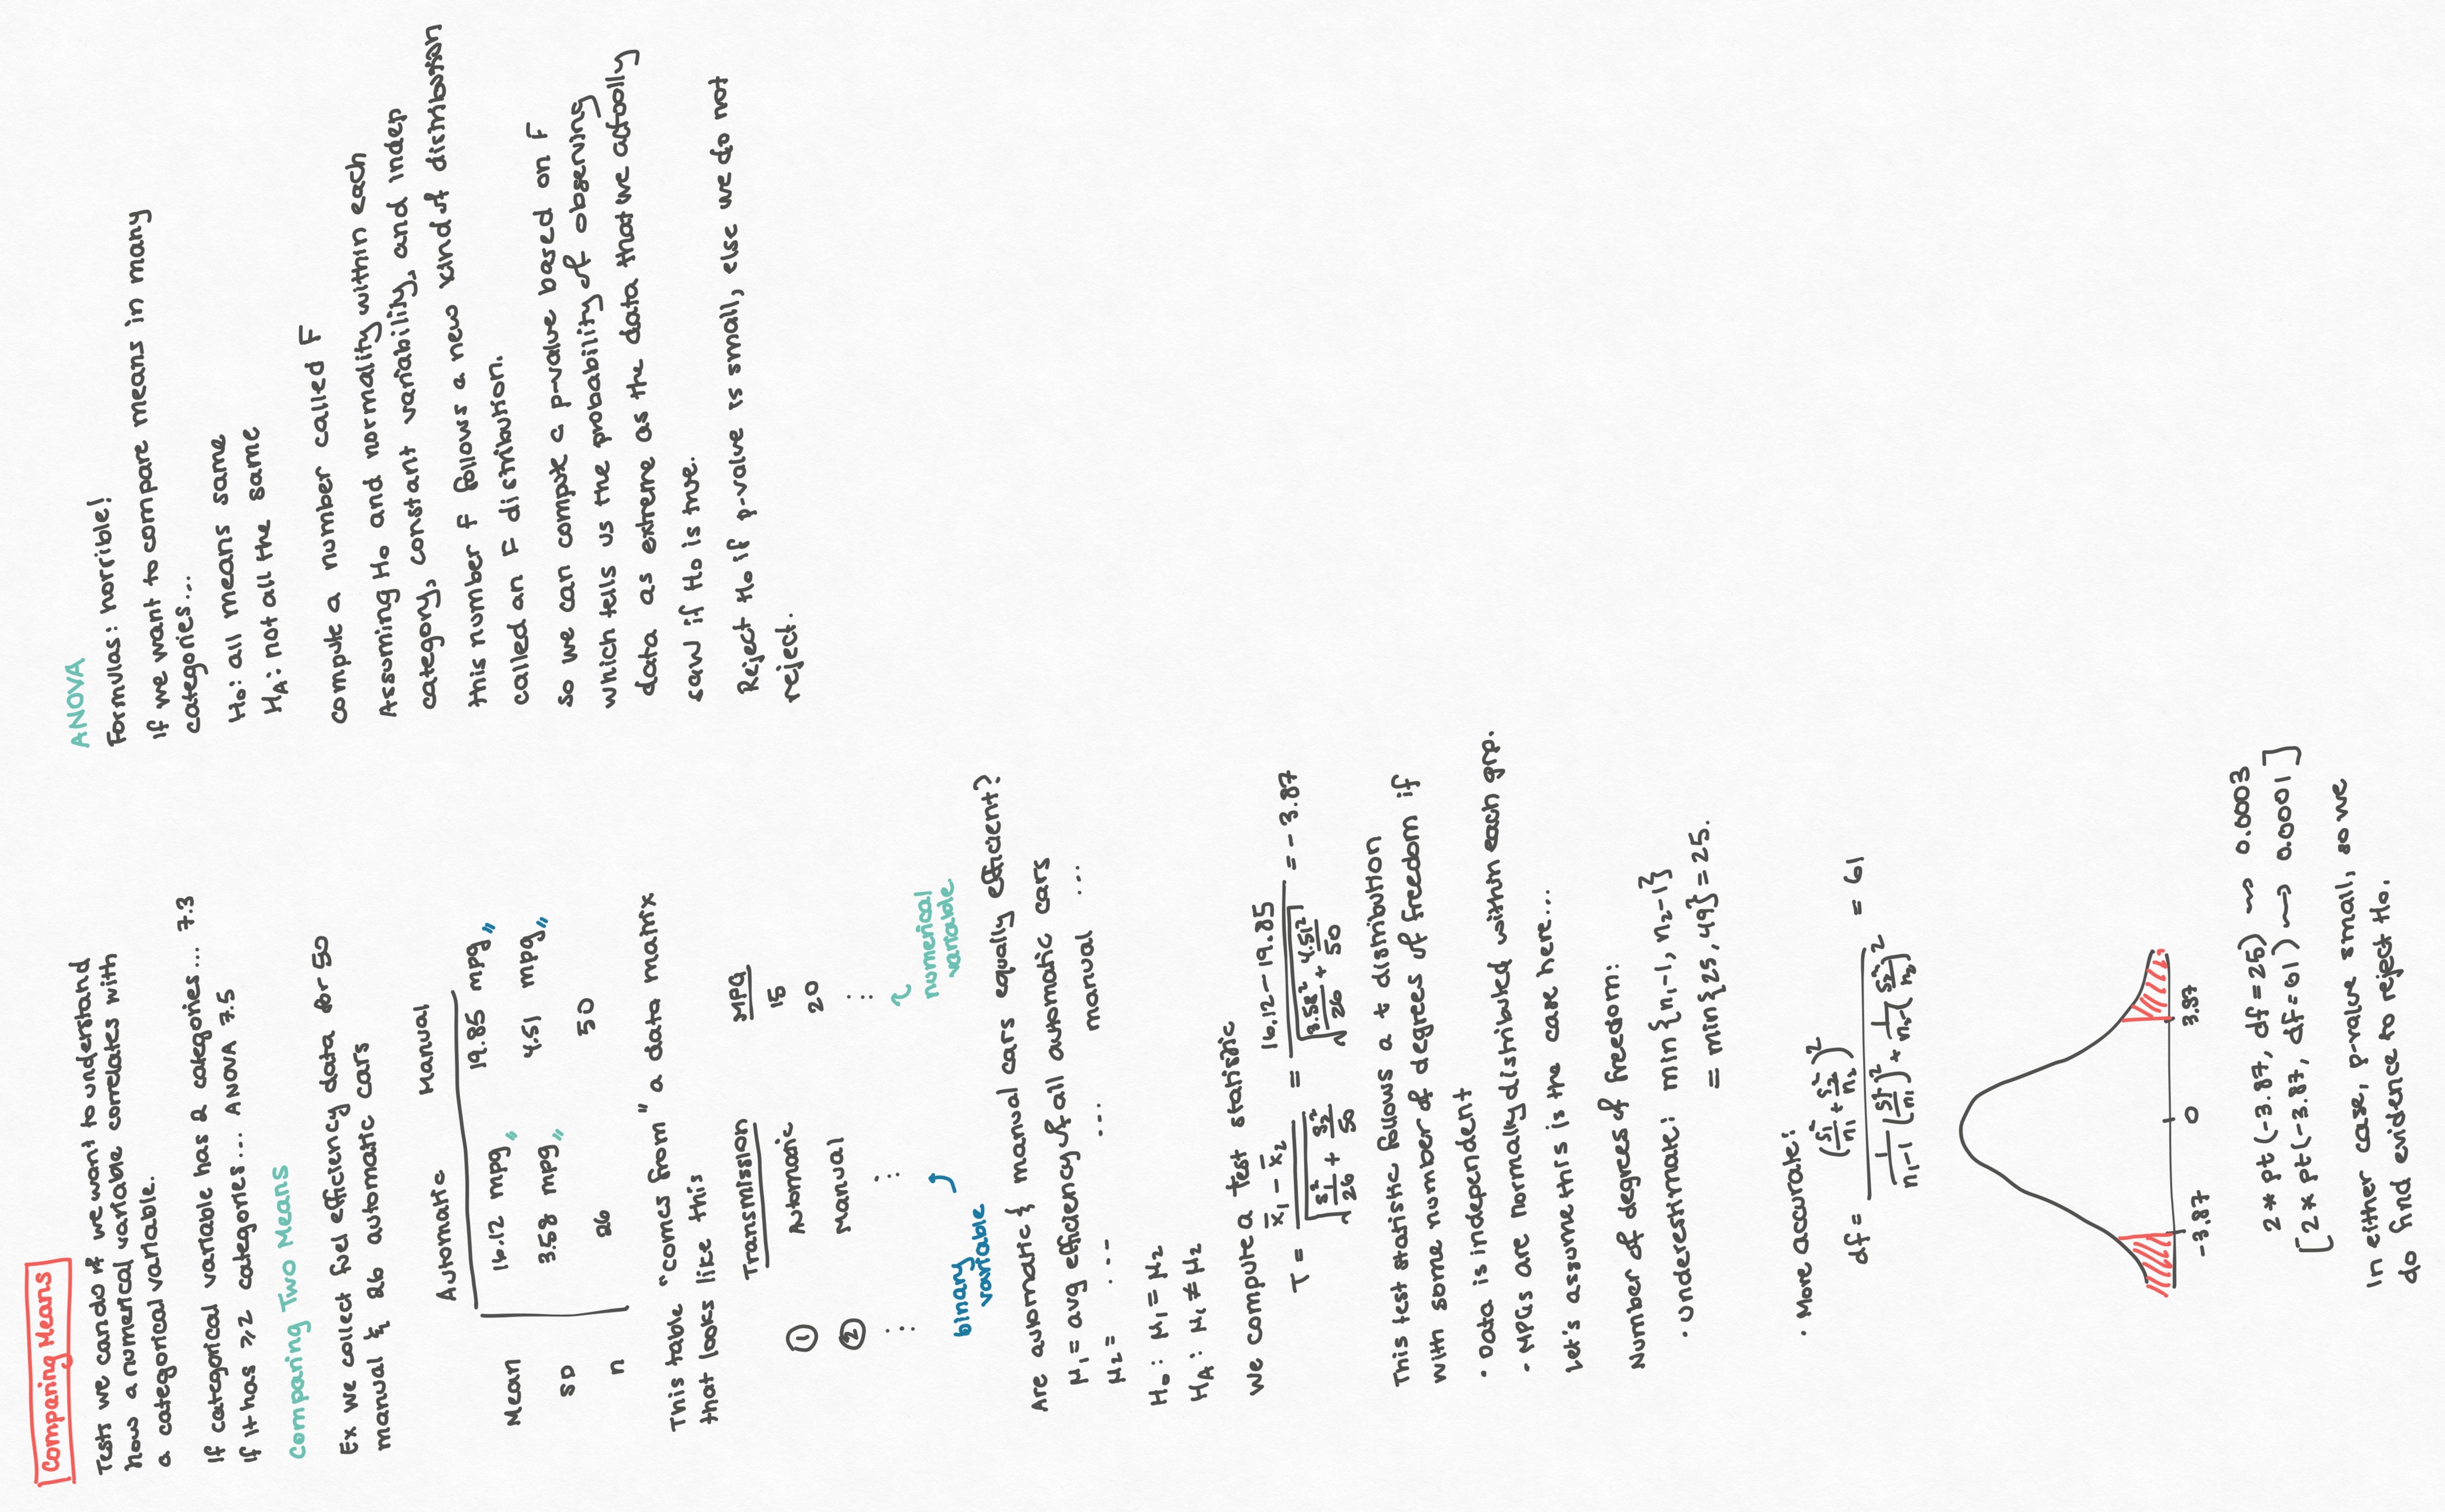 Comparing Means
Tests we can do if we want to understand
how a numerical variable correlates with
a categorical variable.
If categorical variable has 2 categories... 7.3
If it has ≥2 categories... ANOVA 7.5
Comparing Two Means
Ex we collect fuel efficiency data for 50
manual & 26 automatic cars
Automatic Manual
Mean 16.12 mpg,, 19.85 mpg,,
SD 3.58 mpg,, 4.51 mpg,,
n 26 50
This table "comes from" a data matrix
that looks like this
Transmission MPG
① Automatic 15
② Manual 20
⋮ ⋮ ⋮
binary
variable
numerical
variable
Are automatic & manual cars equally efficient?
μ₁ = avg efficiency of all automatic cars
μ₂ = ... ... manual ...
H₀: μ₁ = μ₂
H_A: μ₁ ≠ μ₂
We compute a test statistic
T = (x̄₁ − x̄₂) / √(s₁²/26 + s₂²/50) = (16.12 − 19.85) / √(3.58²/26 + 4.51²/50) = −3.87
This test statistic follows a t distribution
with some number of degrees of freedom if
· Data is independent
· MPGs are normally distributed within each grp.
Let's assume this is the case here...
Number of degrees of freedom:
· Underestimate: min{n₁−1, n₂−1}
= min{25, 49} = 25.
· More accurate:
df = (s₁²/n₁ + s₂²/n₂)² / (1/(n₁−1) (s₁²/n₁)² + 1/(n₂−1) (s₂²/n₂)²) = 61
−3.87 0 3.87
2 * pt (−3.87, df = 25) ⇝ 0.0003
[2 * pt (−3.87, df = 61) ⇝ 0.0001]
In either case, p-value small, so we
do find evidence to reject H₀.
ANOVA
Formulas: horrible!
If we want to compare means in many
categories...
H₀: all means same
H_A: not all the same
Compute a number called F
Assuming H₀ and normality within each
category, constant variability, and indep
this number F follows a new kind of distribution
called an F distribution.
So we can compute a p-value based on F
which tells us the probability of observing
data as extreme as the data that we actually
saw if H₀ is true.
Reject H₀ if p-value is small, else we do not
reject.